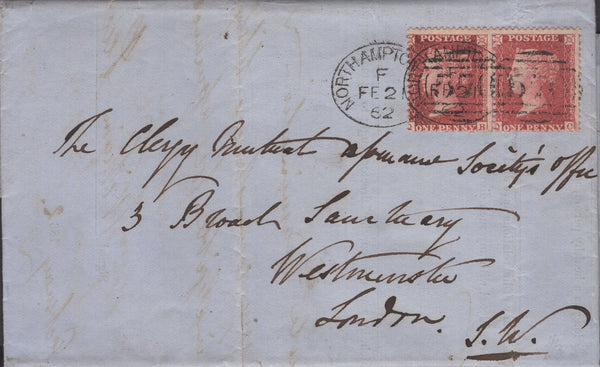 POSTAGE POSTAGE
NORTHAMPTON
F
FE 21
62
ONE PENNY ONE PENNY
The Clergy Mutual Assurance Society's Office
3 Broad Sanctuary
Westminster
London.
S.W.